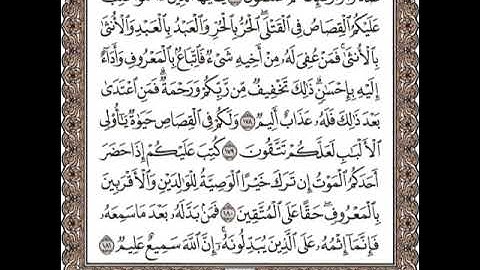 عَلَيْكُمُ ٱلْقِصَاصُ فِى ٱلْقَتْلَى ٱلْحُرُّ بِٱلْحُرِّ وَٱلْعَبْدُ بِٱلْعَبْدِ وَٱلْأُنثَىٰ
بِٱلْأُنثَىٰ فَمَنْ عُفِىَ لَهُۥ مِنْ أَخِيهِ شَىْءٌ فَٱتِّبَاعٌۢ بِٱلْمَعْرُوفِ وَأَدَآءٌ
إِلَيْهِ بِإِحْسَٰنٍ ذَٰلِكَ تَخْفِيفٌ مِّن رَّبِّكُمْ وَرَحْمَةٌ فَمَنِ ٱعْتَدَىٰ
بَعْدَ ذَٰلِكَ فَلَهُۥ عَذَابٌ أَلِيمٌ ١٧٨ وَلَكُمْ فِى ٱلْقِصَاصِ حَيَوٰةٌ يَٰٓأُو۟لِى
ٱلْأَلْبَٰبِ لَعَلَّكُمْ تَتَّقُونَ ١٧٩ كُتِبَ عَلَيْكُمْ إِذَا حَضَرَ
أَحَدَكُمُ ٱلْمَوْتُ إِن تَرَكَ خَيْرًا ٱلْوَصِيَّةُ لِلْوَٰلِدَيْنِ وَٱلْأَقْرَبِينَ
بِٱلْمَعْرُوفِ حَقًّا عَلَى ٱلْمُتَّقِينَ ١٨٠ فَمَنۢ بَدَّلَهُۥ بَعْدَ مَا سَمِعَهُۥ
فَإِنَّمَآ إِثْمُهُۥ عَلَى ٱلَّذِينَ يُبَدِّلُونَهُۥٓ إِنَّ ٱللَّهَ سَمِيعٌ عَلِيمٌ ١٨١